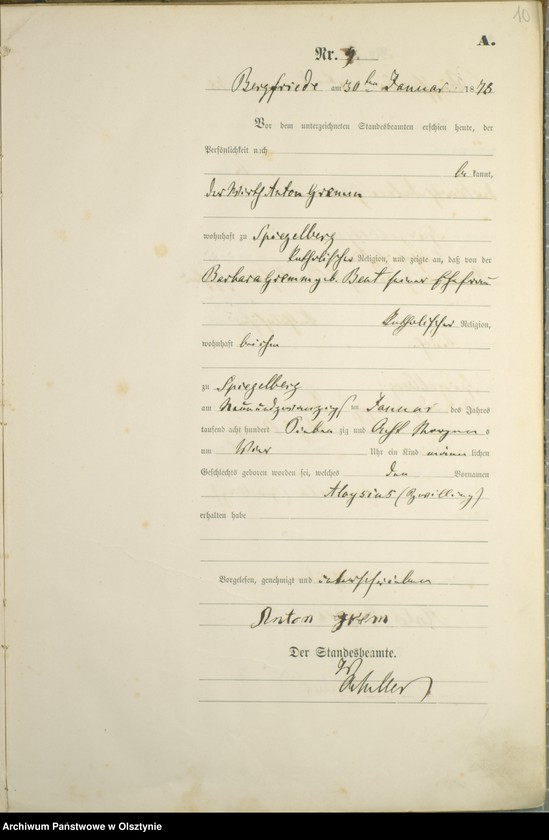 10
A.
Nr. 9.
Bergfriede am 30ten Januar 1878
Vor dem unterzeichneten Standesbeamten erschien heute, der
Persönlichkeit nach
be kannt,
der Wirth Anton Gremm
wohnhaft zu Spiegelberg
katholischer Religion, und zeigte an, daß von der
Barbara Gremm geb. Beut seiner Ehefrau
katholischer Religion,
wohnhaft bei ihm
zu Spiegelberg
am Neunundzwanzigsten Januar des Jahres
tausend acht hundert Sieben zig und Acht Morgens
um Vier Uhr ein Kind männ lichen
Geschlechts geboren worden sei, welches den Vornamen
Aloysius (Zwilling)
erhalten habe
Vorgelesen, genehmigt und unterschrieben
Anton Grem
Der Standesbeamte.
Archiwum Państwowe w Olsztynie